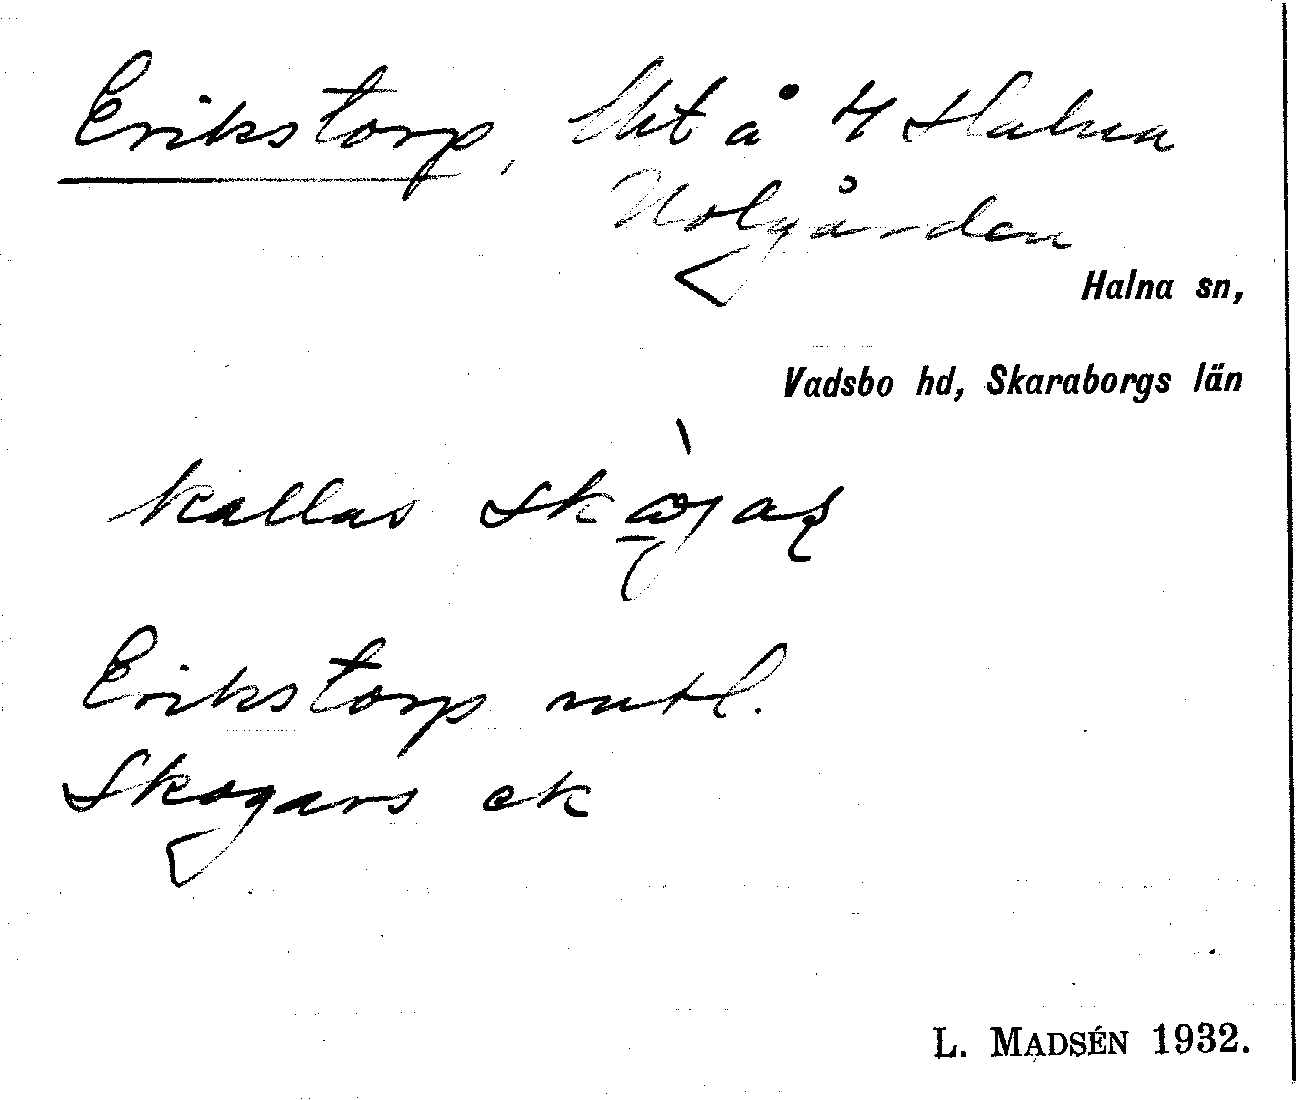 Erikstorp, lht å 4 Halna
Nolgården
Halna sn,
Vadsbo hd, Skaraborgs län
kallas
Erikstorp mtl.
Skogars ek
L. MADSÉN 1932.